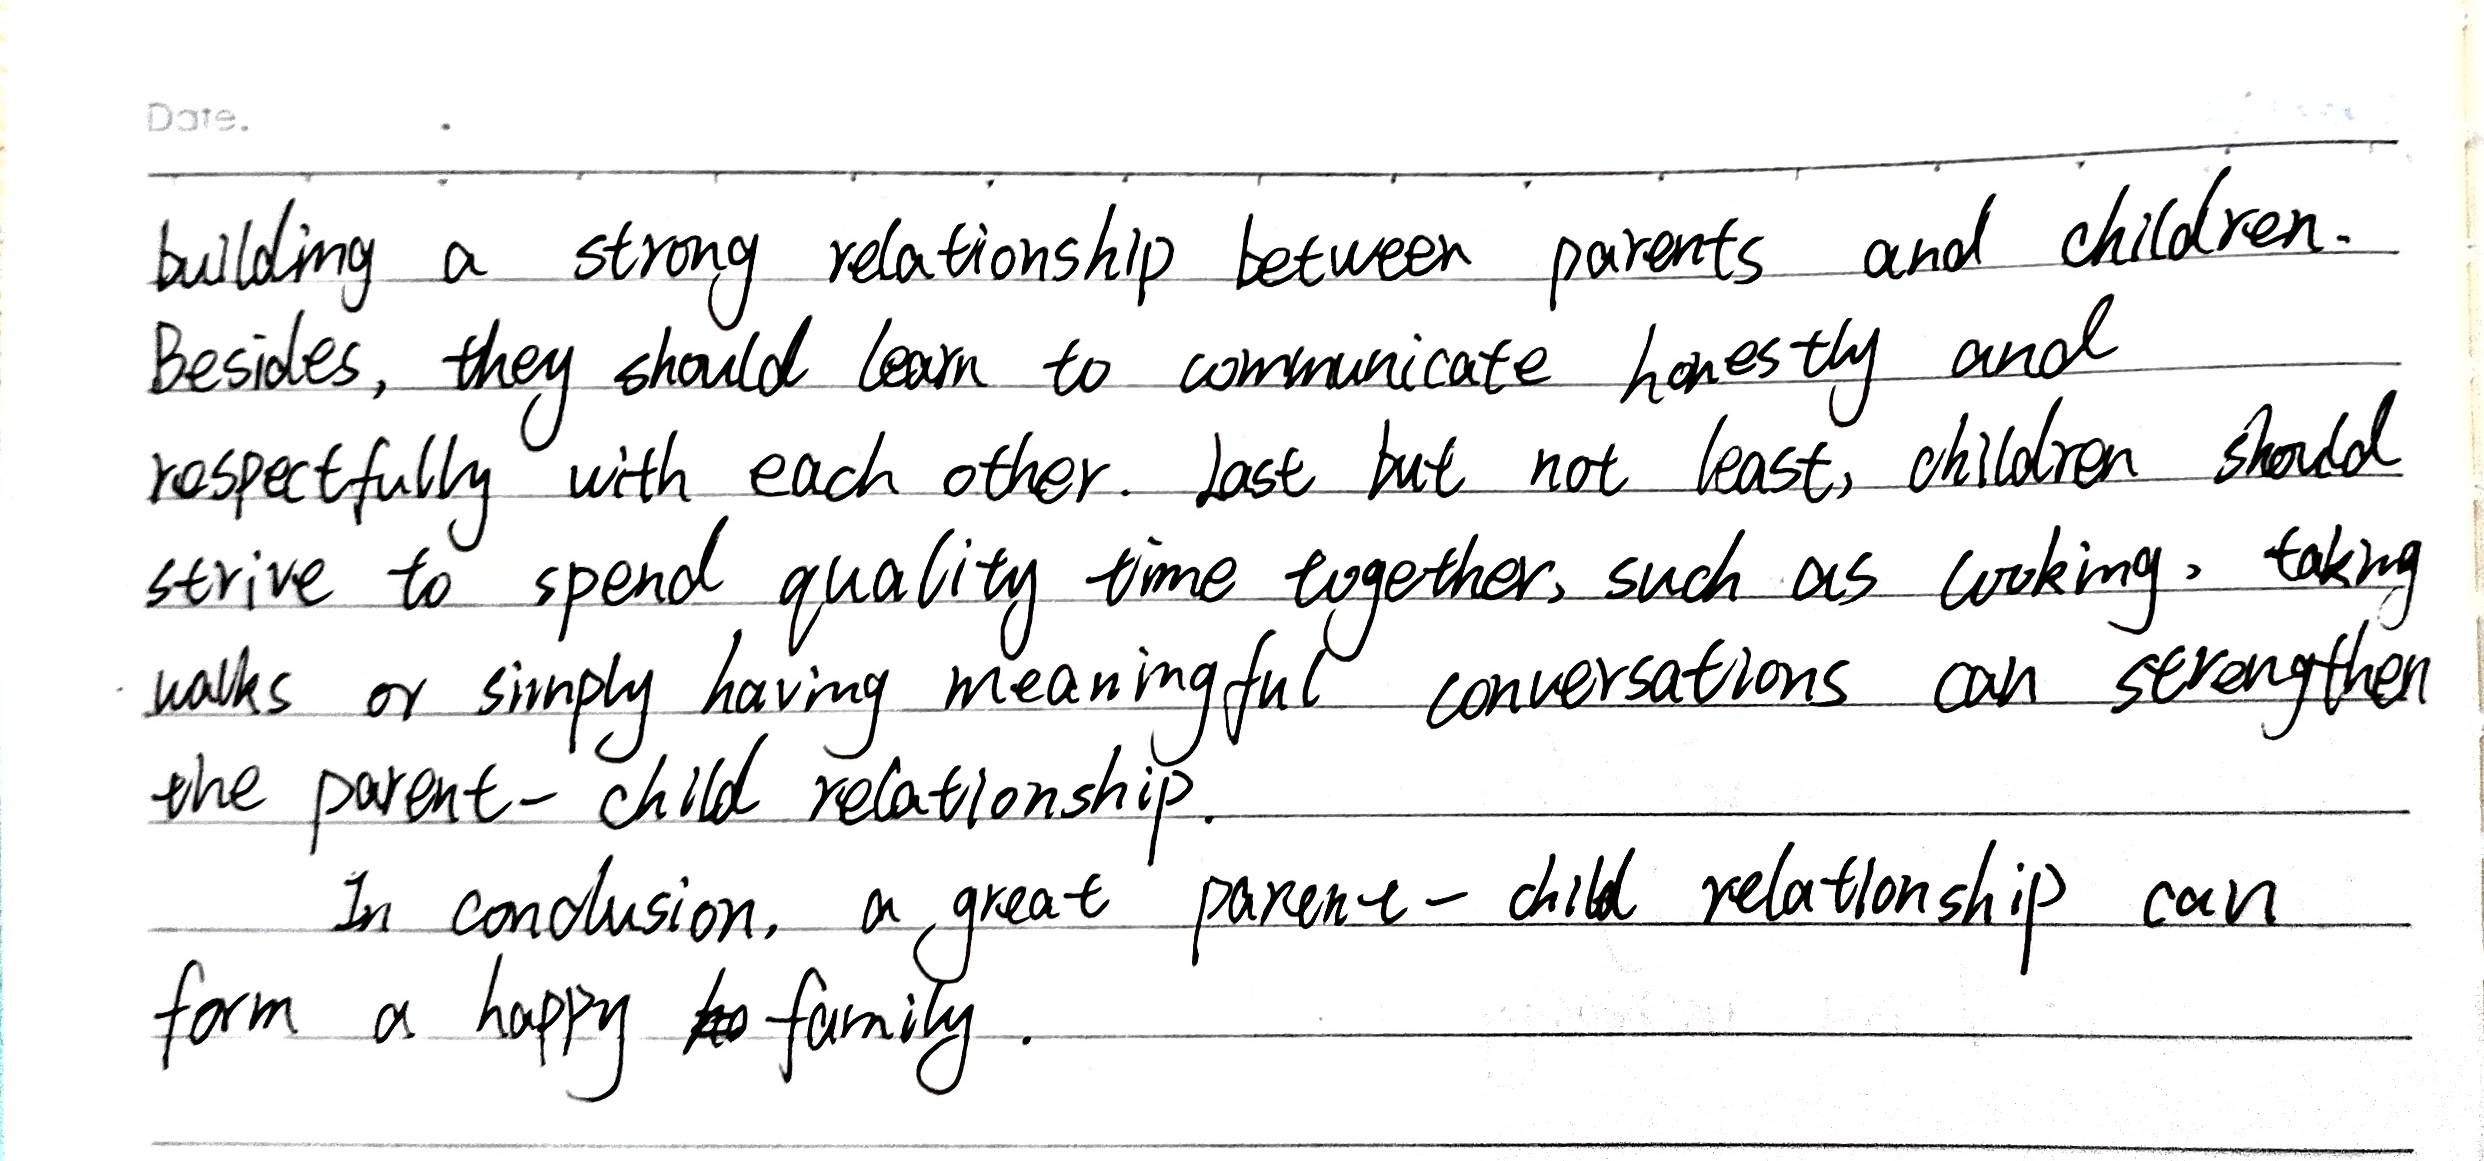 Date.
building a strong relationship between parents and children.
Besides, they should learn to communicate honestly and
respectfully with each other. Last but not least, children should
strive to spend quality time together, such as cooking, taking
walks or simply having meaningful conversations can strengthen
the parent-child relationship.
In conclusion, a great parent-child relationship can
form a happy family.